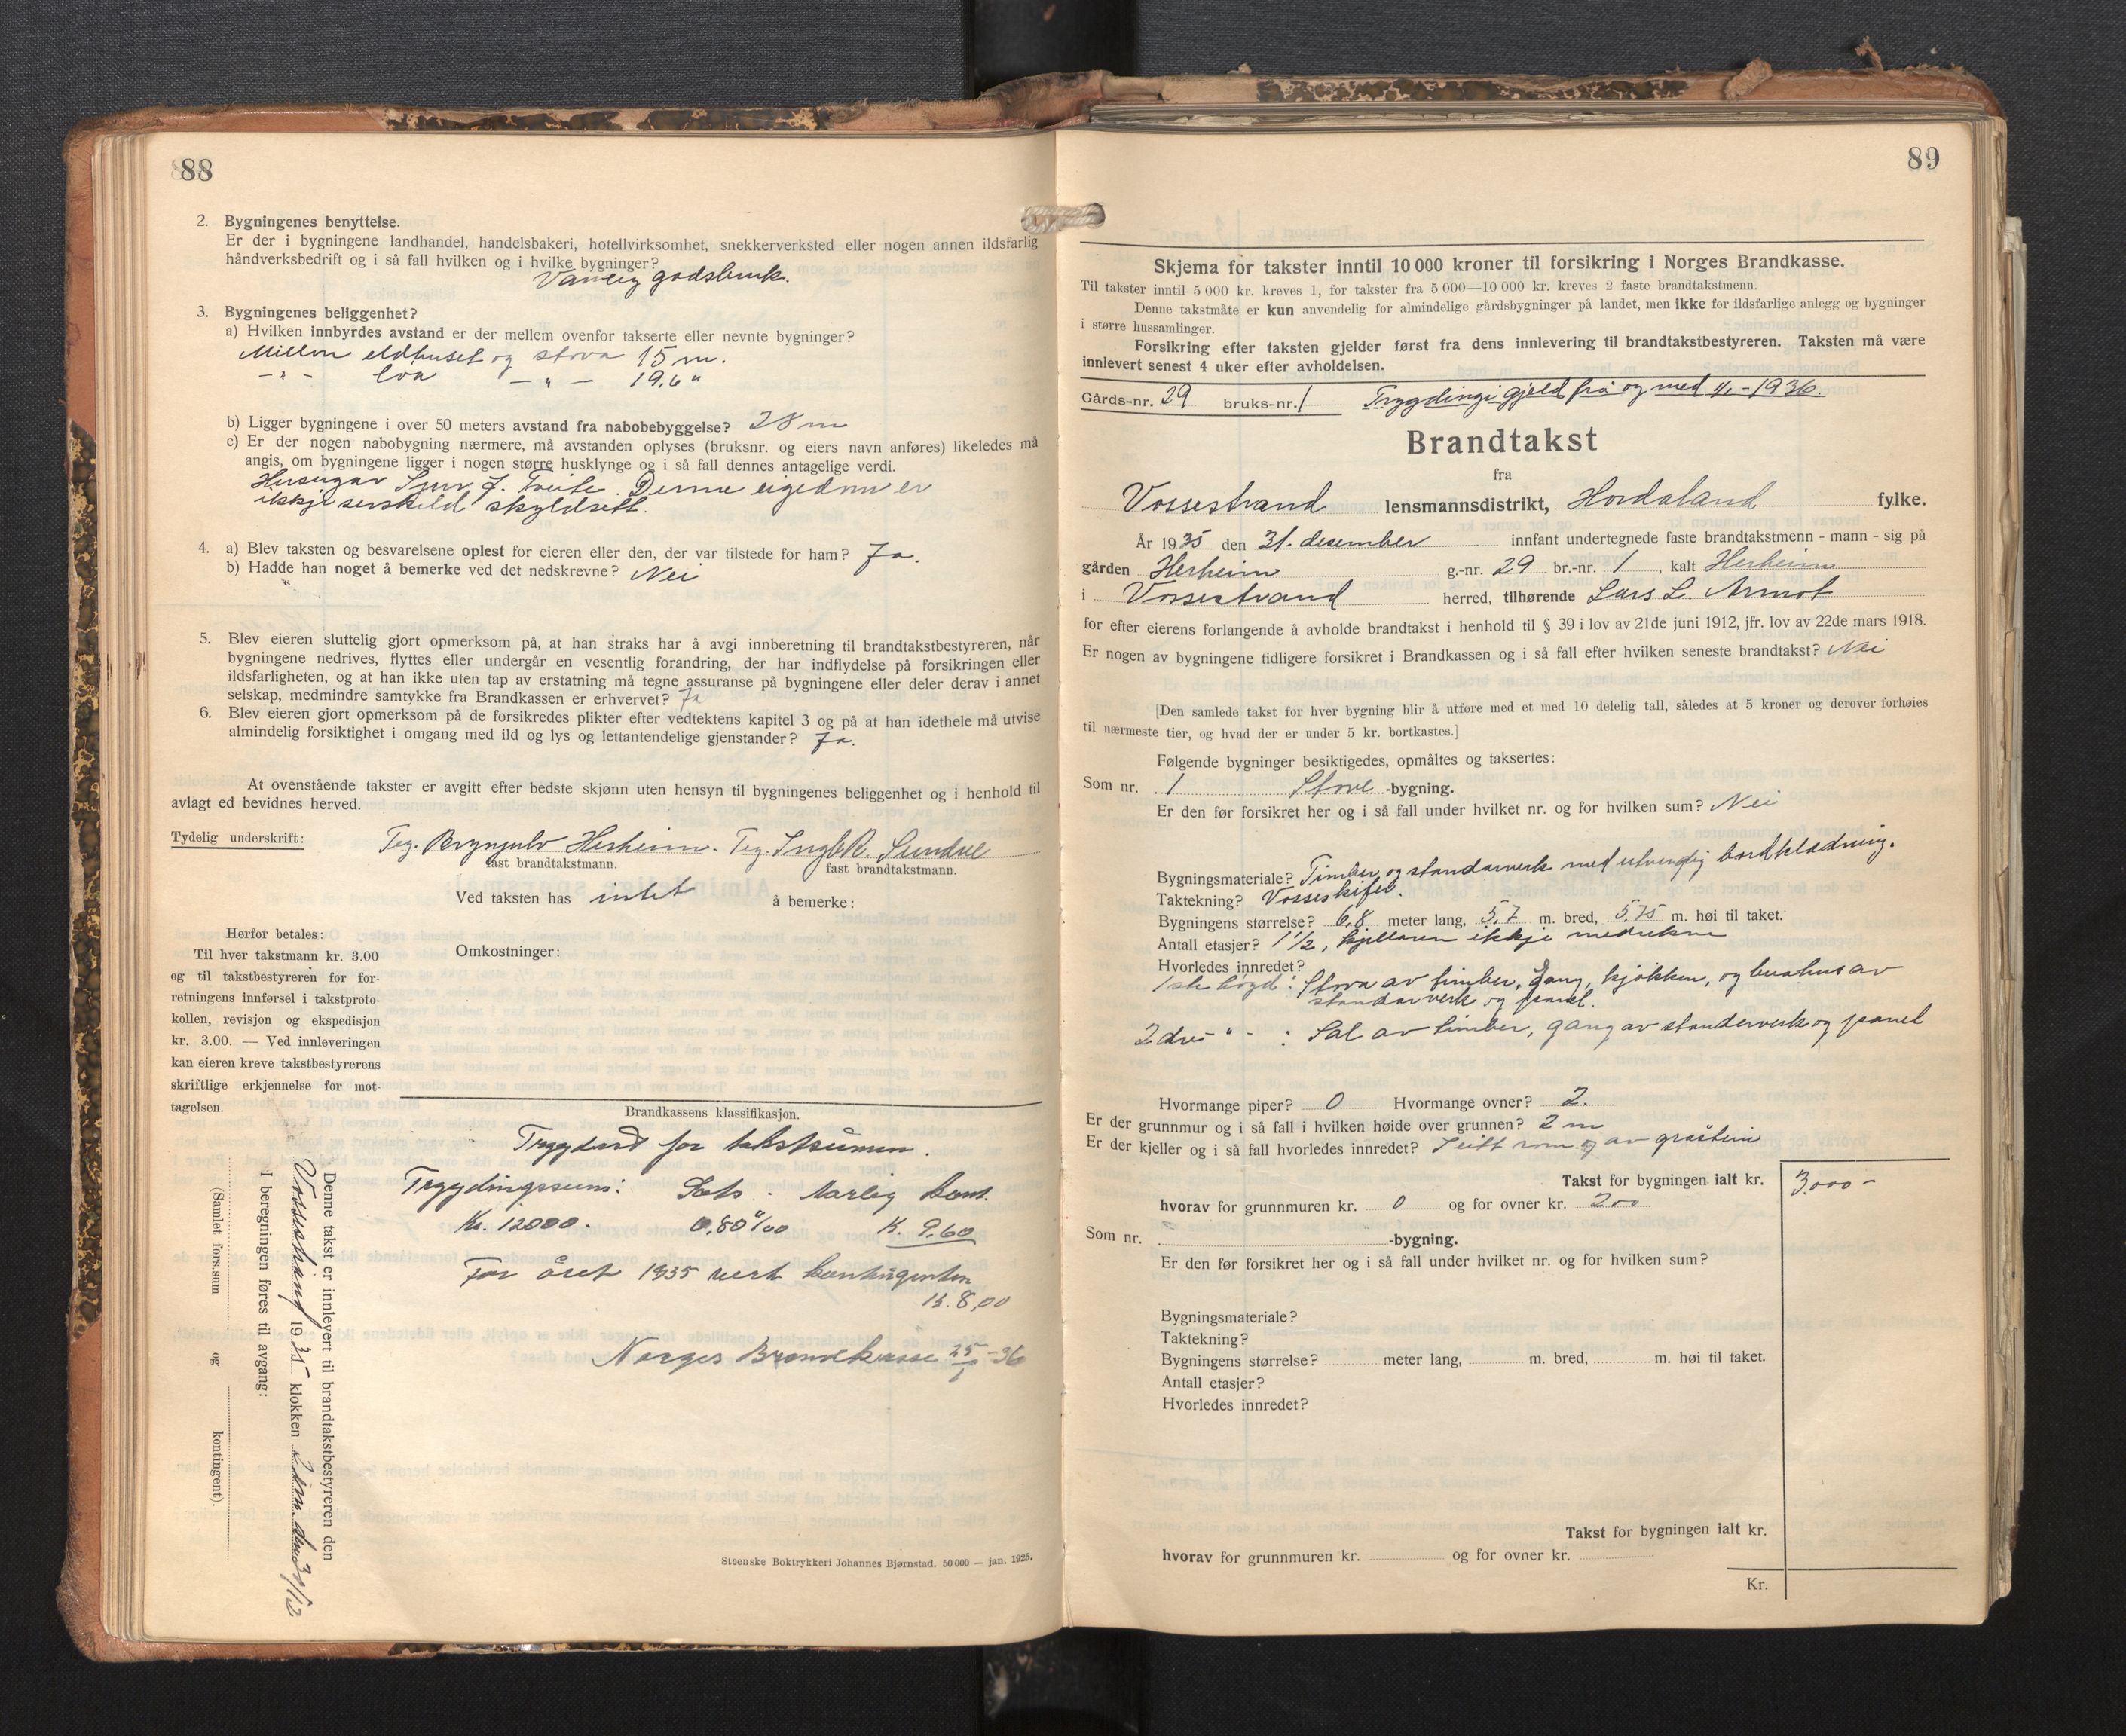 88
2. Bygningenes benyttelse.
Er der i bygningene landhandel, handelsbakeri, hotellvirksomhet, snekkerverksted eller nogen annen ildsfarlig
håndverksbedrift og i så fall hvilken og i hvilke bygninger?
Vanleg gardsbruk.
3. Bygningenes beliggenhet?
a) Hvilken innbyrdes avstand er der mellem ovenfor takserte eller nevnte bygninger?
Millom eldhuset og stova 15 m.
- " - loa - " - 19,6 "
b) Ligger bygningene i over 50 meters avstand fra nabobebyggelse? 28 m
c) Er der nogen nabobygning nærmere, må avstanden oplyses (bruksnr. og eiers navn anføres) likeledes må
angis, om bygningene ligger i nogen større husklynge og i så fall dennes antagelige verdi.
Denne eigedom er
ikkje serskild skyldsett.
4. a) Blev taksten og besvarelsene oplest for eieren eller den, der var tilstede for ham? Ja.
b) Hadde han noget å bemerke ved det nedskrevne? Nei
5. Blev eieren sluttelig gjort opmerksom på, at han straks har å avgi innberetning til brandtakstbestyreren, når
bygningene nedrives, flyttes eller undergår en vesentlig forandring, der har indflydelse på forsikringen eller
ildsfarligheten, og at han ikke uten tap av erstatning må tegne assuranse på bygningene eller deler derav i annet
selskap, medmindre samtykke fra Brandkassen er erhvervet? Ja
6. Blev eieren gjort opmerksom på de forsikredes plikter efter vedtektens kapitel 3 og på at han idethele må utvise
almindelig forsiktighet i omgang med ild og lys og lettantendelige gjenstander? Ja.
At ovenstående takster er avgitt efter bedste skjønn uten hensyn til bygningenes beliggenhet og i henhold til
avlagt ed bevidnes herved.
Tydelig underskrift: Teg. Brynjulv Herheim. Teg. Ingb. R. Sundve
fast brandtakstmann. fast brandtakstmann.
Ved taksten has intet å bemerke:
Herfor betales:
Til hver takstmann kr. 3.00
og til takstbestyreren for for-
retningens innførsel i takstproto-
kollen, revisjon og ekspedisjon
kr. 3.00. — Ved innleveringen
kan eieren kreve takstbestyrerens
skriftlige erkjennelse for mot-
tagelsen.
Omkostninger:
Brandkassens klassifikasjon.
Trygdast for takstsumen.
Trygdingssum: Sats. Aarleg kont.
Kr. 12000. 0,80 ‰ K. 9,60
For året 1935 vert kontingenten
K. 8,00
Norges Brandkasse 25/1-36
Denne takst er innlevert til brandtakstbestyreren den
Vossestrand 1935 klokken 2 em. den 31/12
I beregningen føres til avgang:
(Samlet fors.sum og kontingent).
Steenske Boktrykkeri Johannes Bjørnstad. 50 000 — jan. 1925.
89
Skjema for takster inntil 10 000 kroner til forsikring i Norges Brandkasse.
Til takster inntil 5 000 kr. kreves 1, for takster fra 5 000—10 000 kr. kreves 2 faste brandtakstmenn.
Denne takstmåte er kun anvendelig for almindelige gårdsbygninger på landet, men ikke for ildsfarlige anlegg og bygninger
i større hussamlinger.
Forsikring efter taksten gjelder først fra dens innlevering til brandtakstbestyreren. Taksten må være
innlevert senest 4 uker efter avholdelsen.
Gårds-nr. 29 bruks-nr. 1 Trygdingi gjeld frå og med 1/1-1936.
Brandtakst
fra
Vossestrand lensmannsdistrikt, Hordaland fylke.
År 1935 den 31. desember innfant undertegnede faste brandtakstmenn - mann - sig på
gården Herheim g.-nr. 29 br.-nr. 1, kalt Herheim
i Vossestrand herred, tilhørende Lars L. Armot
for efter eierens forlangende å avholde brandtakst i henhold til § 39 i lov av 21de juni 1912, jfr. lov av 22de mars 1918.
Er nogen av bygningene tidligere forsikret i Brandkassen og i så fall efter hvilken seneste brandtakst? Nei
[Den samlede takst for hver bygning blir å utføre med et med 10 delelig tall, således at 5 kroner og derover forhøies
til nærmeste tier, og hvad der er under 5 kr. bortkastes.]
Følgende bygninger besiktigedes, opmåltes og taksertes:
Som nr. 1 Stove -bygning.
Er den før forsikret her og i så fall under hvilket nr. og for hvilken sum? Nei
Bygningsmateriale? Timber og standarverk med utvendig bordklædning.
Taktekning? Vosseskifer.
Bygningens størrelse? 6,8 meter lang, 5,7 m. bred, 5,75 m. høi til taket.
Antall etasjer? 1 1/2, kjellaren ikkje medrekna
Hvorledes innredet?
1ste høgd: Stova av timber, gang, kjøkken, og buahus av
standarverk og panel.
2dre - " - : Sal av timber, gang av standerverk og panel
Hvormange piper? 0 Hvormange ovner? 2.
Er der grunnmur og i så fall i hvilken høide over grunnen? 2 m
Er der kjeller og i så fall hvorledes innredet? I eitt rom og av gråstein
Takst for bygningen ialt kr. 3.000 -
hvorav for grunnmuren kr. 0 og for ovner kr. 200
Som nr. -bygning.
Er den før forsikret her og i så fall under hvilket nr. og for hvilken sum?
Bygningsmateriale?
Taktekning?
Bygningens størrelse? meter lang, m. bred, m. høi til taket.
Antall etasjer?
Hvorledes innredet?
Takst for bygningen ialt kr.
hvorav for grunnmuren kr. og for ovner kr.
Kr.